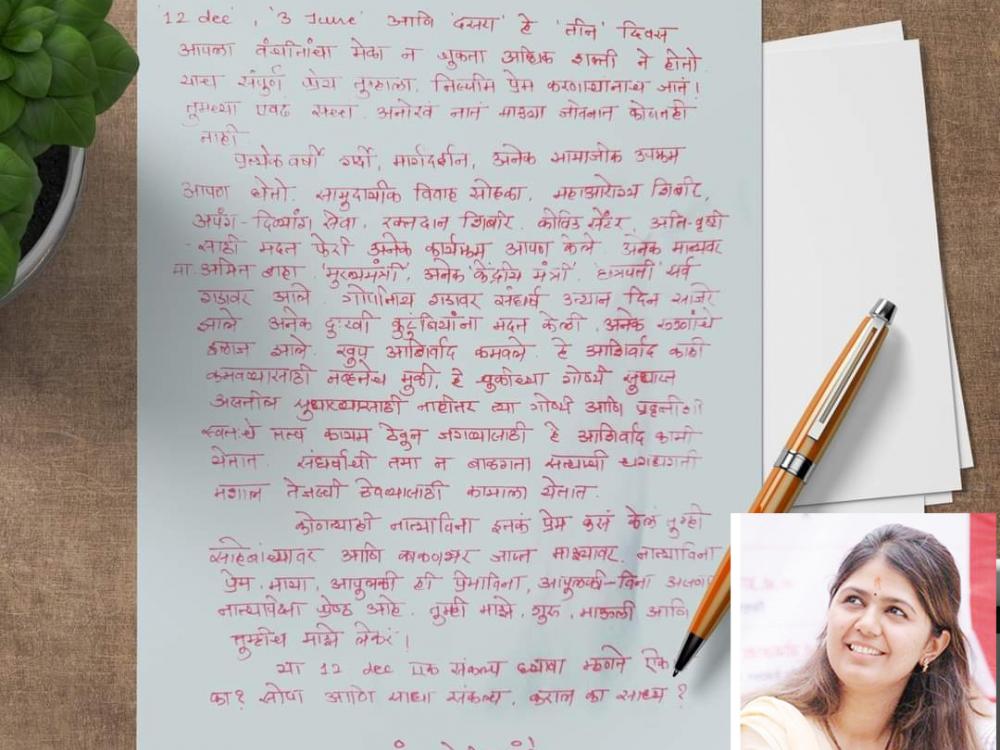 '12 dec', '3 June' आणि 'दसरा' हे 'तीन' दिवस
आपला वंचितांचा मेळा न चुकता अधिक शक्ती ने होतो.
याचं संपूर्ण श्रेय तुम्हाला, निस्सीम प्रेम करणाऱ्यांनाच जातं!
तुमच्या एवढं सख्खं, अनोखं नातं माझ्या जीवनात कोणतंही
नाही
प्रत्येक वर्षी गर्दी, मार्गदर्शन, अनेक सामाजीक उपक्रम
आपण घेतो. सामुदायीक विवाह सोहळा. महाआरोग्य शिबीर,
अपंग-दिव्यांग सेवा, रक्तदान शिबीर. कोविड सेंटर, अति-वृष्टी
साठी मदत फेरी अनेक कार्यक्रम आपण केले. अनेक मान्यवर
मा. अमित शहा, 'मुख्यमंत्री', अनेक 'केंद्रीय मंत्री', 'छत्रपती' सर्व
गडावर आले. गोपीनाथ गडावर संघर्ष उन्यान दिन साजरे
झाले अनेक दुःखी कुटुंबियांना मदत केली. अनेक रुग्णांचे
इलाज झाले. खूप आशिर्वाद कमवले. हे आशिर्वाद काही
कमवण्यासाठी नव्हतेच मुळी, हे चुकीच्या गोष्टी सुधारत
असतील सुधारण्यासाठी नाहीतर त्या गोष्टी आणि प्रवृत्तीशी
स्वतःचे सत्त्व कायम ठेवून जगण्यासाठी हे आशिर्वाद कामी
येतात. संघर्षाची तमा न बाळगता सत्याची धगधगती
मशाल तेजस्वी ठेवण्यासाठी कामाला येतात.
कोणत्याही नात्याविना इतकं प्रेम कसं केलं तुम्ही
साहेबांच्यावर आणि काकणभर जास्त माझ्यावर. नात्याविना
प्रेम, माया, आपुलकी ही प्रेमाविना, आपुलकी-विना असलेल्या
नात्यापेक्षा श्रेष्ठ आहे. तुम्ही माझे गुरू, माऊली आणि
तुम्हीच माझे लेकरं!
या 12 dec एक संकल्प घ्यावा म्हणते ऐकाल
का? सोपा आणि साधा संकल्प, कराल का साध्य?